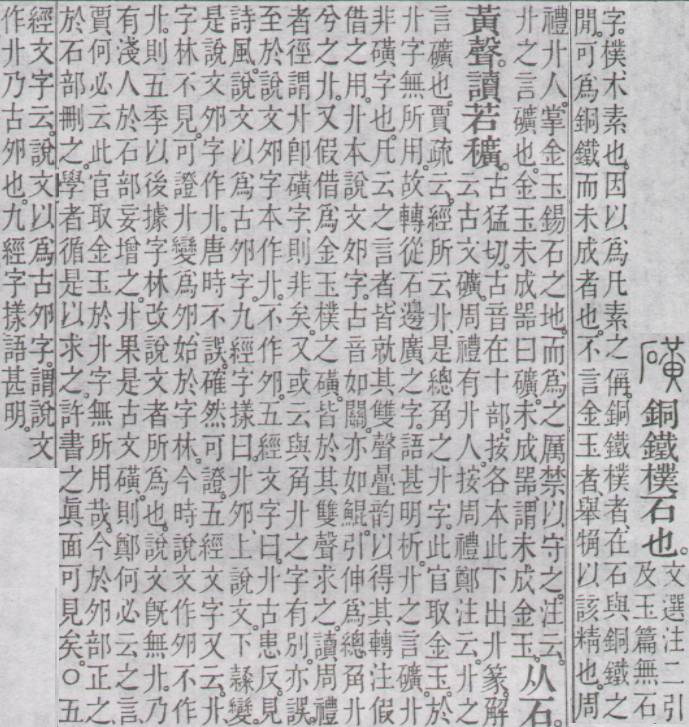 磺
銅鐵樸石也。
文選注二引
及玉篇無石
字。樸木素也。因以爲凡素之偁。銅鐵樸者、在石與銅鐵之
閒。可爲銅鐵而未成者也。不言金玉者、舉觕以該精也。周
禮丱人。掌金玉錫石之地。而爲之厲禁以守之。注云。
丱之言礦也。金玉未成器曰礦。未成器、謂未成金玉。
从石。
黃聲。讀若穬。
古猛切。古音在十部。按各本此下出丱篆。解
云古文礦。周禮有丱人。按周禮鄭注云。丱之
言礦也。賈疏云。經所云丱、是總角之丱字。此官取金玉於
丱字無所用。故轉從石邊廣之字。語甚明析。丱之言礦。丱
非磺字也。凡云之言者、皆就其雙聲疊韵以得其轉注假
借之用。丱本說文卵字。古音如關。亦如鯤。引伸爲總角丱
兮之丱。又假借爲金玉樸之磺。皆於其雙聲求之。讀周禮
者徑謂丱卽磺字則非矣。又或云與角丱之字有別。亦誤。
至於說文卵字本作丱。不作卵。五經文字曰。丱古患反。見
詩風。說文以爲古卵字。九經字樣曰。丱卵、上說文、下隸變。
是說文卵字作丱。唐時不誤。確然可證。五經文字又云。丱
字林不見。可證丱變爲卵、始於字林。今時說文作卵不作
丱。則五季以後據字林改說文者所爲也。說文旣無丱。乃
有淺人於石部妄增之。丱果是古文磺。則鄭何必云之言。
賈何必云此官取金玉於丱字無所用哉。今於卵部正之。
於石部刪之。學者循是以求之。許書之眞面可見矣。〇五
經文字云。說文以爲古卵字。謂說文
作丱乃古卵也。九經字樣語甚明。